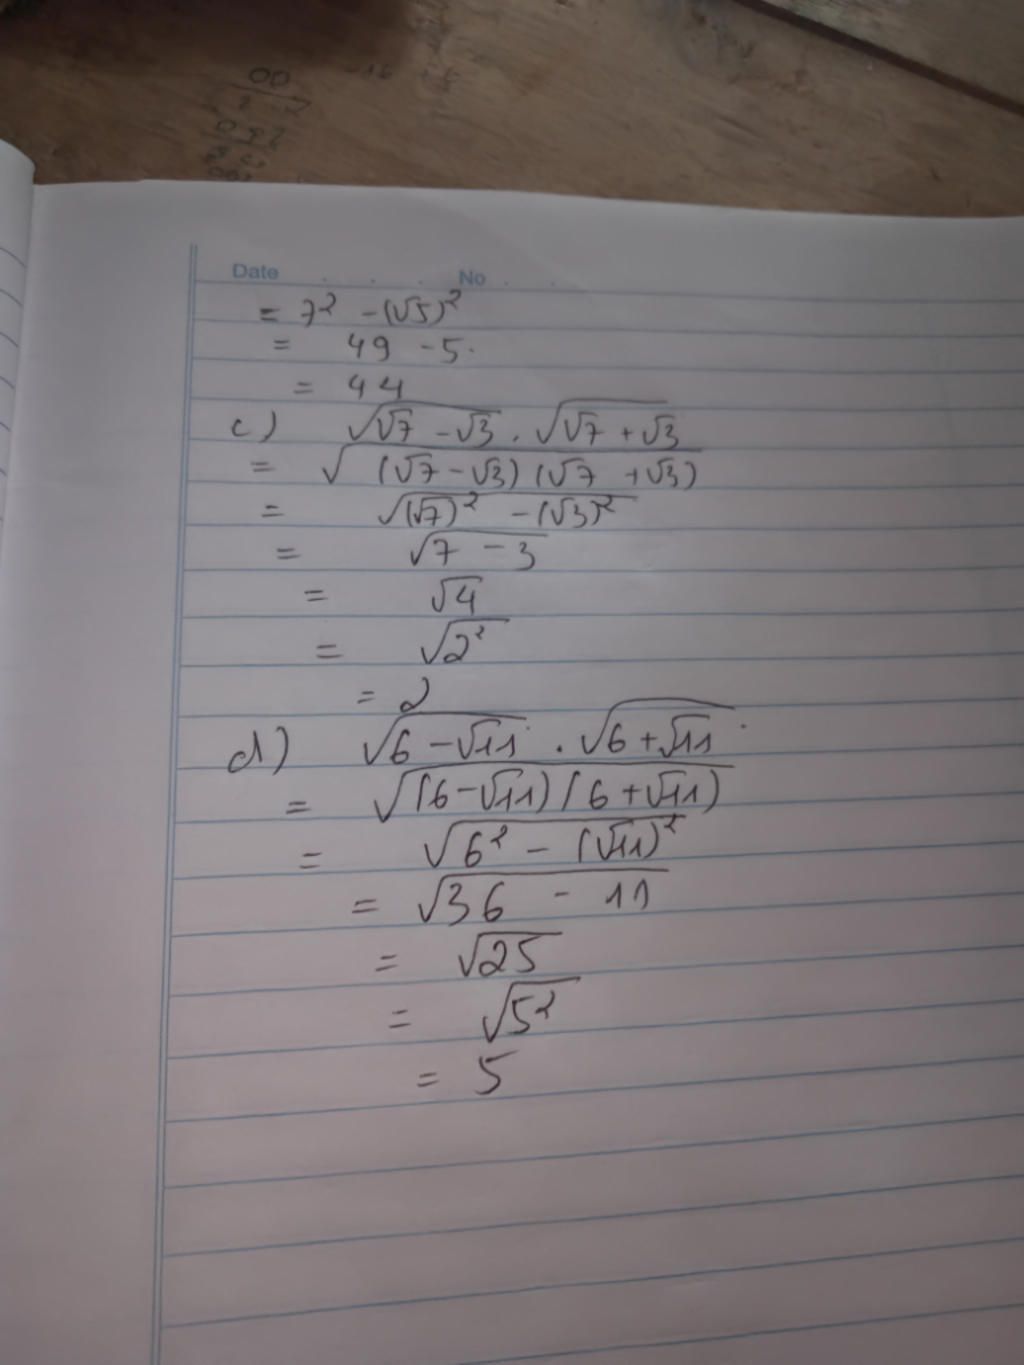 Date No
= 7² - (√5)²
= 49 - 5.
= 44
c) √(√7 - √3) . √(√7 + √3)
= √((√7 - √3) (√7 + √3))
= √((√7)² - (√3)²)
= √(7 - 3)
= √4
= √2²
= 2
d) √(6 - √11) . √(6 + √11)
= √((6 - √11) (6 + √11))
= √(6² - (√11)²)
= √(36 - 11)
= √25
= √5²
= 5